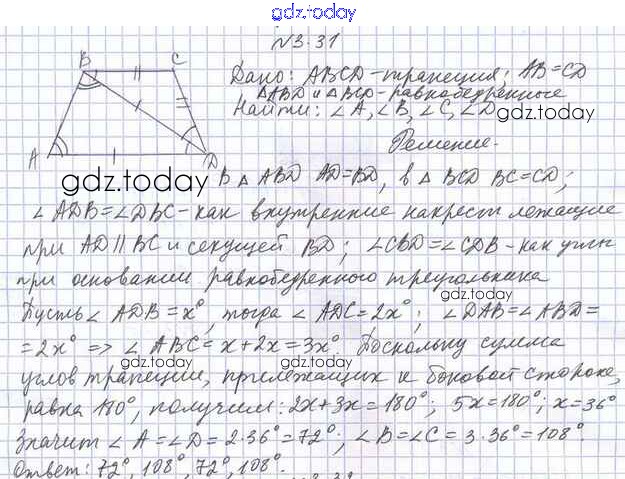 gdz.today
№3.31
B C
Дано: ABCD-трапеция; AB=CD
△ABD и △BCD-равнобедренные
Найти: ∠A, ∠B, ∠C, ∠D
gdz.today
Решение.
A D
gdz.today
В △ ABD AD=BD, в △ BCD BC=CD;
∠ADB=∠DBC-как внутренние накрест лежащие
при AD∥BC и секущей BD; ∠CBD=∠CDB-как углы
при основании равнобедренного треугольника
gdz.today
Пусть ∠ADB=x°, тогда ∠ADC=2x°; ∠DAB=∠ABD=
=2x° => ∠ABC=x+2x=3x°. Поскольку сумма
gdz.today gdz.today
углов трапеции, прилежащих к боковой стороне,
равна 180°, получим: 2x+3x=180°; 5x=180°; x=36°
Значит ∠A=∠D=2·36°=72°; ∠B=∠C=3·36°=108°.
gdz.today
Ответ: 72°, 108°, 72°, 108°.